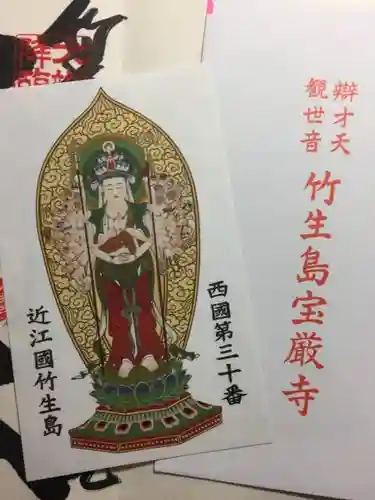 辯才天
觀世音
竹生島宝厳寺
西國第三十番
近江國竹生島